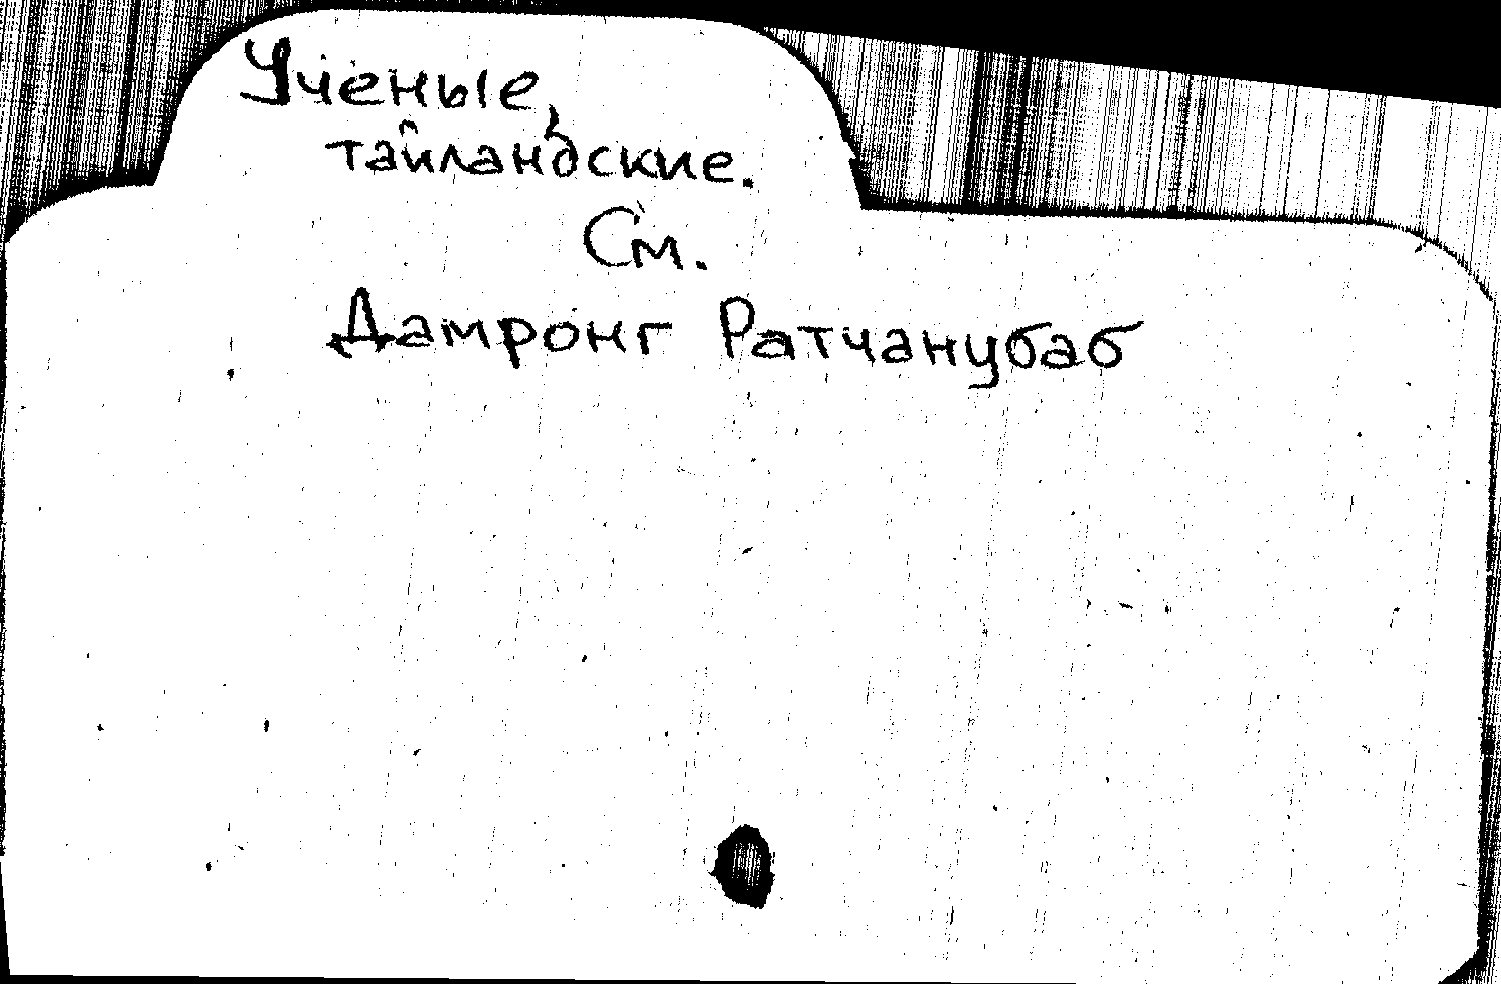 Ученые,
тайландские.
См.
Дамронг Ратчанубаб